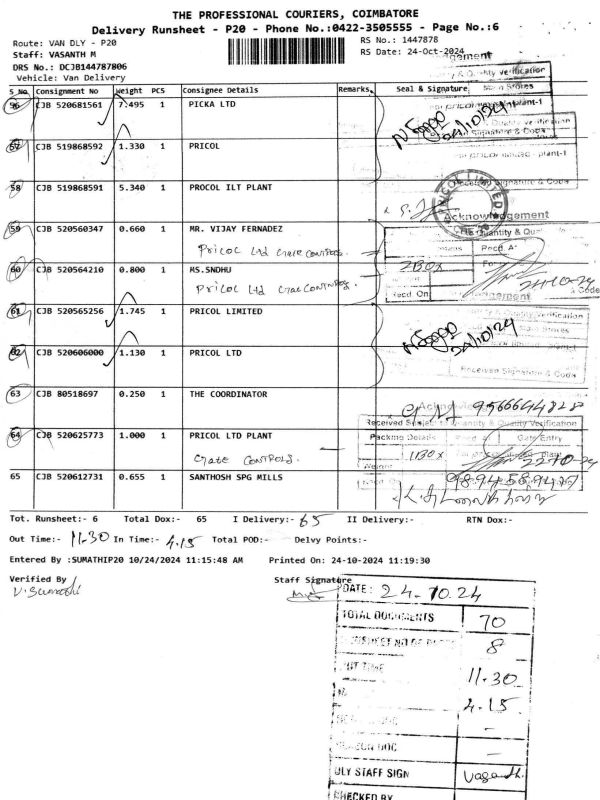 THE PROFESSIONAL COURIERS, COIMBATORE
Delivery Runsheet - P20 - Phone No.:0422-3505555 - Page No.:6
Route: VAN DLY - P20
RS No.: 1447878
Staff: VASANTH M
RS Date: 24-Oct-2024
DRS No.: DCJB144787806
Vehicle: Van Delivery
S No. Consignment No Weight PCS Consignee Details Remarks. Seal & Signature
56 CJB 520681561 7.495 1 PICKA LTD
24/10/24
57 CJB 519868592 1.330 1 PRICOL
58 CJB 519868591 5.340 1 PROCOL ILT PLANT
Received Signature & Code
PRICOL LIMITED
Acknowledgement
59 CJB 520560347 0.660 1 MR. VIJAY FERNADEZ
Pricol Ltd Crate Controls.
60 CJB 520564210 0.800 1 MS.SNDHU
Pricol Ltd
2 BOX
24-10-24
61 CJB 520565256 1.745 1 PRICOL LIMITED
24/10/24
62 CJB 520606000 1.130 1 PRICOL LTD
Received Signature & Code
63 CJB 80518697 0.250 1 THE COORDINATOR
9566644828
64 CJB 520625773 1.000 1 PRICOL LTD PLANT
Crate Controls.
Packing Details Gate Entry
1 BOX
65 CJB 520612731 0.655 1 SANTHOSH SPG MILLS
Tot. Runsheet:- 6 Total Dox:- 65 I Delivery:- 65 II Delivery:- RTN Dox:-
Out Time:- 11.30 In Time:- 4.15 Total POD:- Delvy Points:-
Entered By :SUMATHIP20 10/24/2024 11:15:48 AM Printed On: 24-10-2024 11:19:30
Verified By
V. Sumathi
Staff Signature
DATE: 24.10.24
TOTAL DOCUMENTS 70
8
OUT TIME 11.30
4.15
-
-
DLY STAFF SIGN Vasanth.
CHECKED BY